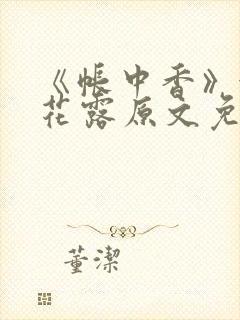 《帐中香》
花露原文免
董潔